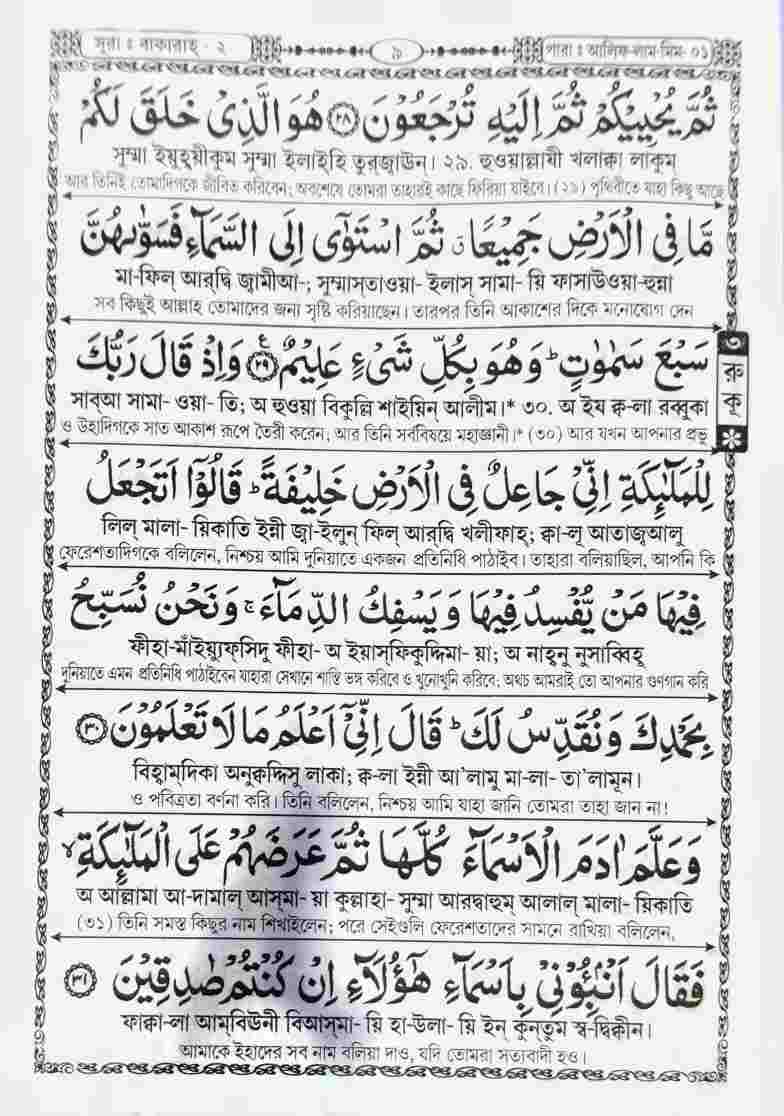 সূরা ঃ বাকারাহ্ - ২
৯
পারা ঃ আলিফ-লাম-মিম- ০১
ثُمَّ يُحْيِيْكُمْ ثُمَّ اِلَيْهِ تُرْجَعُوْنَ ﴿٢٨﴾ هُوَ الَّذِيْ خَلَقَ لَكُمْ
সুম্মা ইয়ুহ্য়ীকুম সুম্মা ইলাইহি তুরজ্বাঊন। ২৯. হুওয়াল্লাযী খলাক্বা লাকুম্
আর তিনিই তোমাদিগকে জীবিত করিবেন; অবশেষে তোমরা তাহারই কাছে ফিরিয়া যাইবে। (২৯) পৃথিবীতে যাহা কিছু আছে
مَّا فِى الْاَرْضِ جَمِيْعًا ۗ ثُمَّ اسْتَوٰٓى اِلَى السَّمَآءِ فَسَوّٰىهُنَّ
মা-ফিল্ আর্‌দ্বি জ্বামীআ-; সুম্মাস্‌তাওয়া- ইলাস্ সামা- য়ি ফাসাউওয়া-হুন্না
সব কিছুই আল্লাহ তোমাদের জন্য সৃষ্টি করিয়াছেন। তারপর তিনি আকাশের দিকে মনোযোগ দেন
سَبْعَ سَمٰوٰتٍ ؕ وَهُوَ بِكُلِّ شَيْءٍ عَلِيْمٌ ﴿٢٩﴾ ع وَاِذْ قَالَ رَبُّكَ
সাব্‌আ সামা- ওয়া- তি; অ হুওয়া বিকুল্লি শাইয়িন্ আলীম।* ৩০. অ ইয ক্ব-লা রব্বুকা
ও উহাদিগকে সাত আকাশ রূপে তৈরী করেন; আর তিনি সর্ববিষয়ে মহাজ্ঞানী।* (৩০) আর যখন আপনার প্রভু
৩
রুকূ
لِلْمَلٰٓئِكَةِ اِنِّىْ جَاعِلٌ فِى الْاَرْضِ خَلِيْفَةً ؕ قَالُوْٓا اَتَجْعَلُ
লিল্ মালা- য়িকাতি ইন্নী জ্বা-ইলুন্ ফিল্ আর্‌দ্বি খলীফাহ্; ক্বা-লূ আতাজ্ব্‌আলু
ফেরেশতাদিগকে বলিলেন, নিশ্চয় আমি দুনিয়াতে একজন প্রতিনিধি পাঠাইব। তাহারা বলিয়াছিল, আপনি কি
فِيْهَا مَنْ يُّفْسِدُ فِيْهَا وَ يَسْفِكُ الدِّمَآءَ ۚ وَنَحْنُ نُسَبِّحُ
ফীহা-মাঁইয়্যুফ্‌সিদু ফীহা- অ ইয়াস্‌ফিকুদ্দিমা- য়া; অ নাহ্‌নু নুসাব্বিহু
দুনিয়াতে এমন প্রতিনিধি পাঠাইবেন যাহারা সেখানে শান্তি ভঙ্গ করিবে ও খুনোখুনি করিবে; অথচ আমরাই তো আপনার গুণগান করি
بِحَمْدِكَ وَنُقَدِّسُ لَكَ ؕ قَالَ اِنِّىْٓ اَعْلَمُ مَا لَا تَعْلَمُوْنَ ﴿٣٠﴾
বিহ্বাম্‌দিকা অনুক্বদ্দিসু লাকা; ক্ব-লা ইন্নী আ'লামু মা-লা- তা'লামূন।
ও পবিত্রতা বর্ণনা করি। তিনি বলিলেন, নিশ্চয় আমি যাহা জানি তোমরা তাহা জান না!
وَعَلَّمَ اٰدَمَ الْاَسْمَآءَ كُلَّهَا ثُمَّ عَرَضَهُمْ عَلَى الْمَلٰٓئِكَةِ ۙ
অ আল্লামা আ-দামাল্ আস্‌মা- য়া কুল্লাহা- সুম্মা আরদ্বাহুম্ আলাল্ মালা- য়িকাতি
(৩১) তিনি সমস্ত কিছুর নাম শিখাইলেন; পরে সেইগুলি ফেরেশতাদের সামনে রাখিয়া বলিলেন,
فَقَالَ اَنْۢبِـُٔوْنِىْ بِاَسْمَآءِ هٰٓؤُلَآءِ اِنْ كُنْتُمْ صٰدِقِيْنَ ﴿٣١﴾
ফাক্বা-লা আম্‌বিঊনী বিআস্‌মা- য়ি হা-উলা- য়ি ইন্ কুন্‌তুম স্ব-দ্বিক্বীন।
আমাকে ইহাদের সব নাম বলিয়া দাও, যদি তোমরা সত্যবাদী হও।